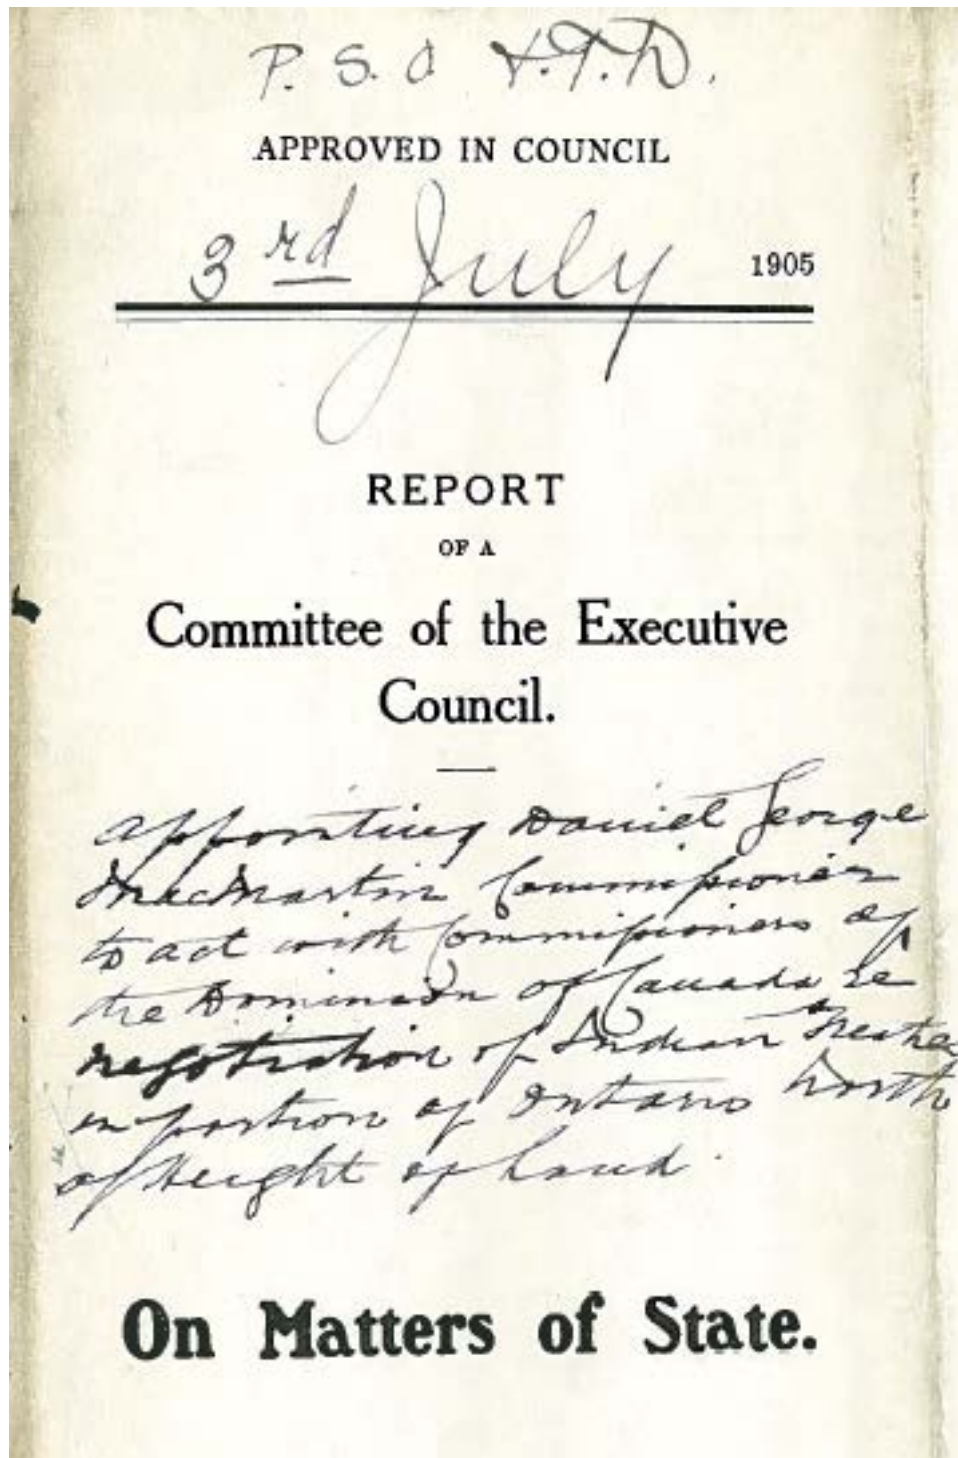 P. S. O
APPROVED IN COUNCIL
3rd July 1905
REPORT
OF A
Committee of the Executive
Council.
Appointing Daniel George
MacMartin Commissioner
to act with Commissioners of
the Dominion of Canada re
negotiation of Indian
in portion of Ontario North
of Height of Land.
On Matters of State.